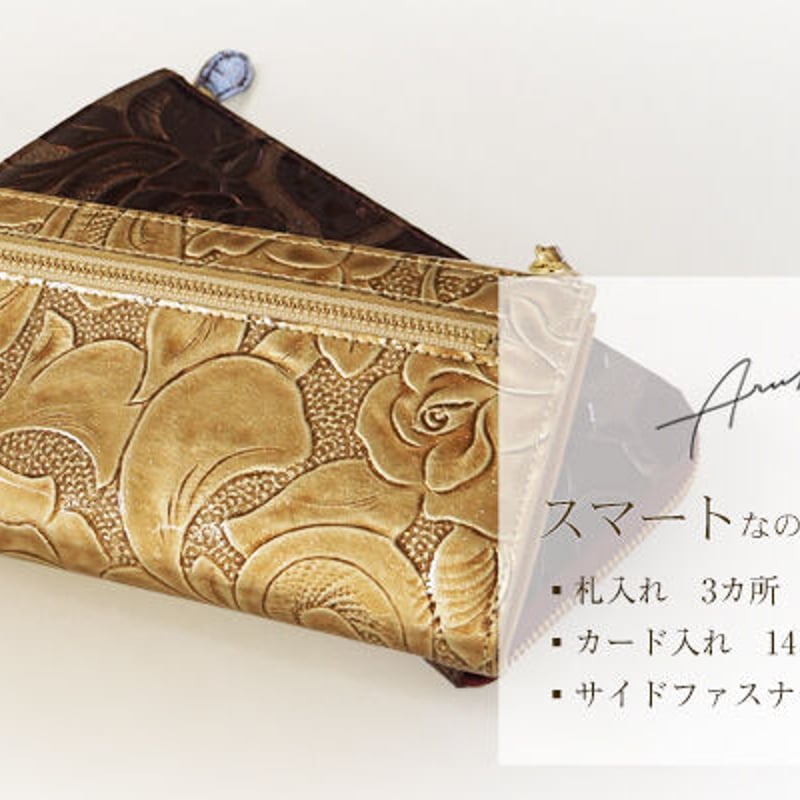 スマートなの
▪ 札入れ 3カ所
▪ カード入れ 14
▪ サイドファスナ